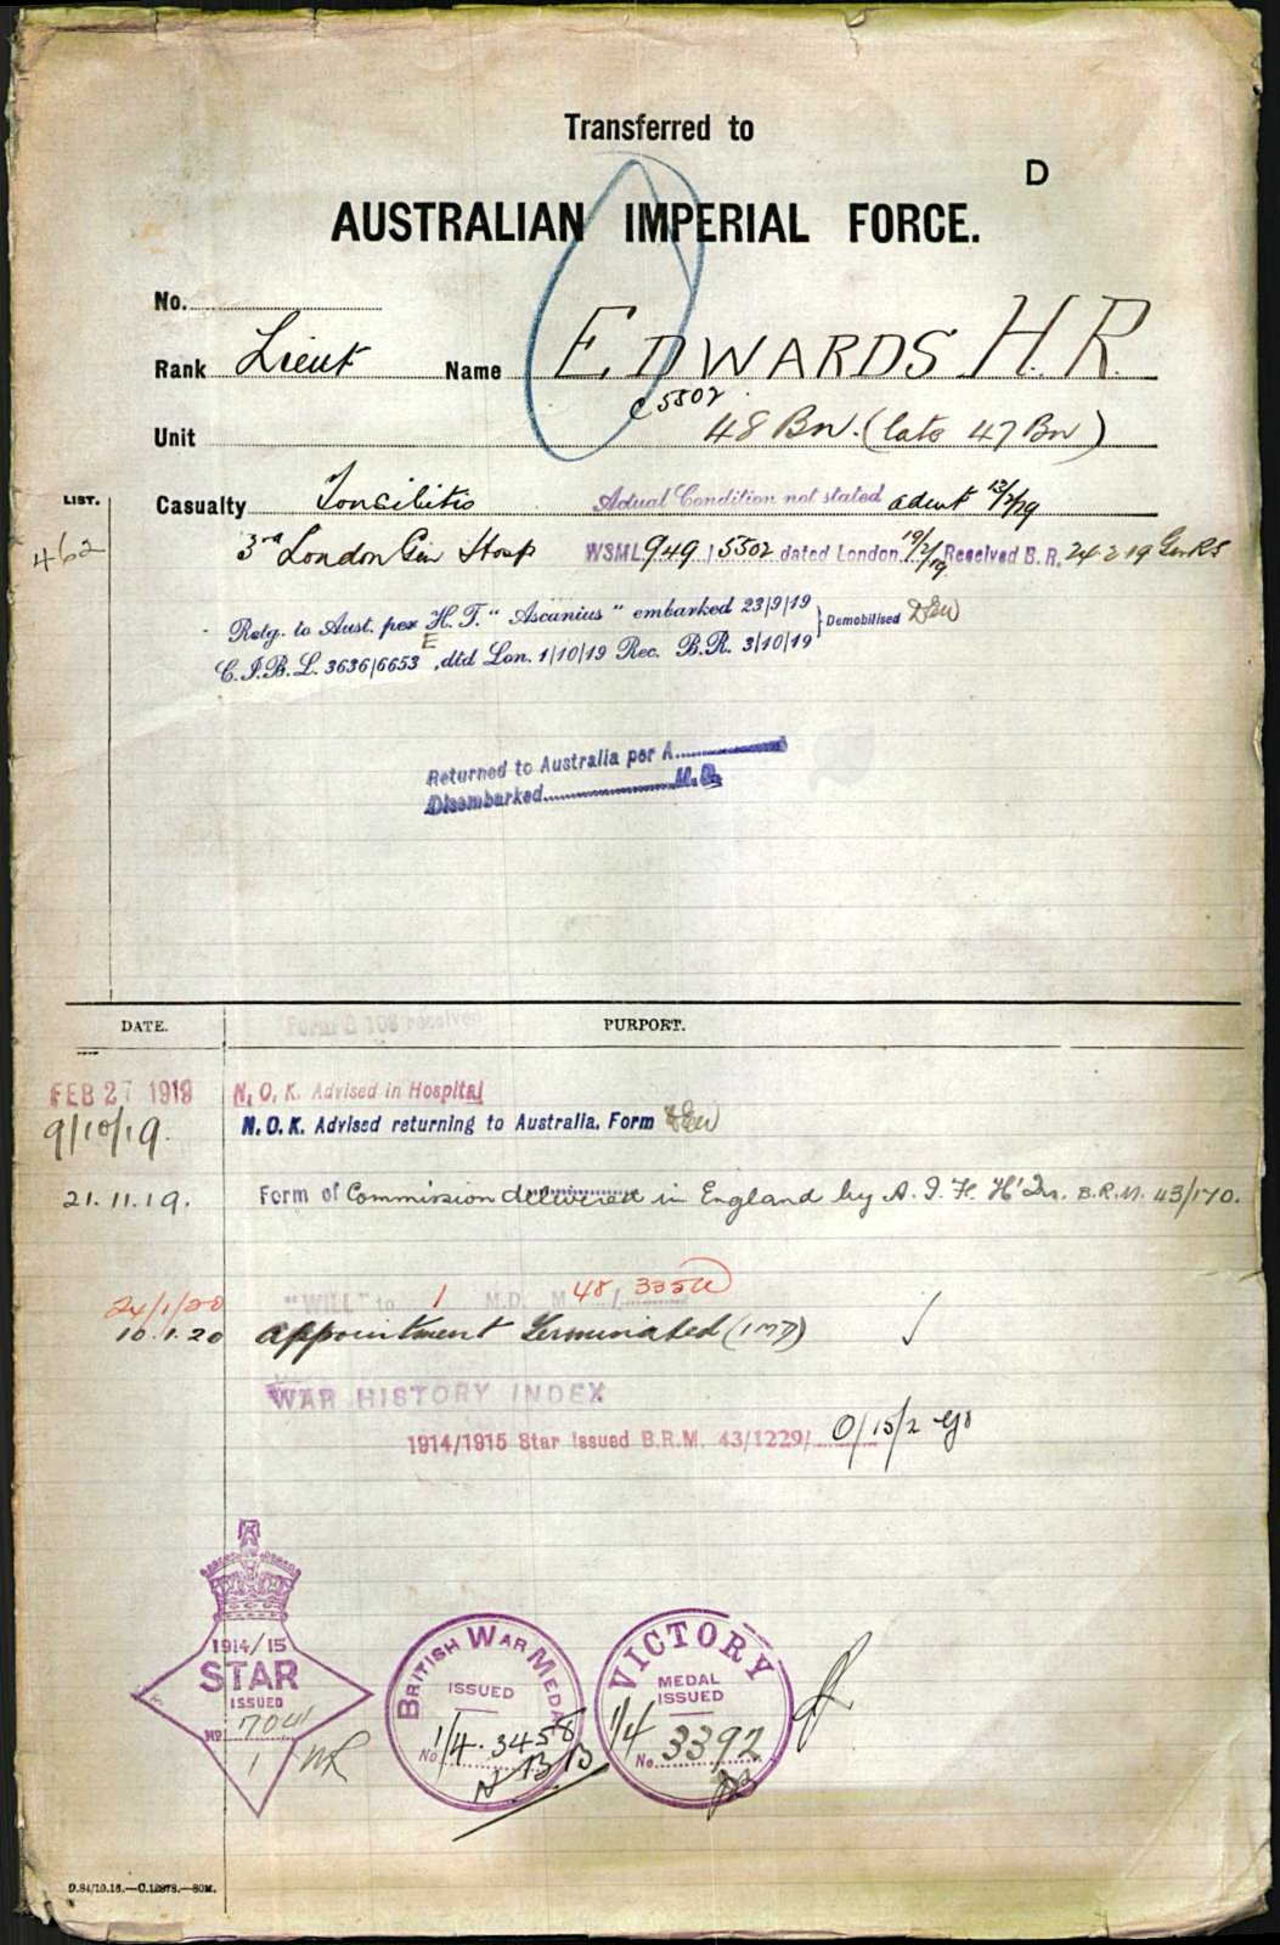 Transferred to
D
AUSTRALIAN IMPERIAL FORCE.
No.
Rank Lieut Name EDWARDS H.R.
C 5502
Unit 48 Bn. (late 47 Bn)
LIST. Casualty Tonsilitis Actual Condition not stated admt 13/2/19
462 3rd London Gen Hosp WSML 949/5502 dated London 19/2/19 Received B.R. 24 2 19
Retg. to Aust. per H. T. "Ascanius" embarked 23/9/19 Demobilised
E
C.I.B.L. 3636/6653, dtd Lon. 1/10/19 Rec. B.R. 3/10/19
Returned to Australia per A
Disembarked M.D.
DATE. Form B 103 received PURPORT.
FEB 27 1919 N.O.K. Advised in Hospital
9/10/19. N.O.K. Advised returning to Australia. Form
21.11.19. Form of Commission delivered in England by A.I.F. H'Qrs. B.R.M. 43/170.
24/1/20 "WILL" to 1 M.D. M 48/
10.1.20 Appointment Terminated (1 MD)
WAR HISTORY INDEX
1914/1915 Star Issued B.R.M. 43/1229/ 0/15/2
1914/15
STAR
ISSUED
No 7041
1
BRITISH WAR MEDAL
ISSUED
No 1/4. 3458
VICTORY
MEDAL
ISSUED
1/4
No. 3392
D.84/10.16.—C.12878.—80M.